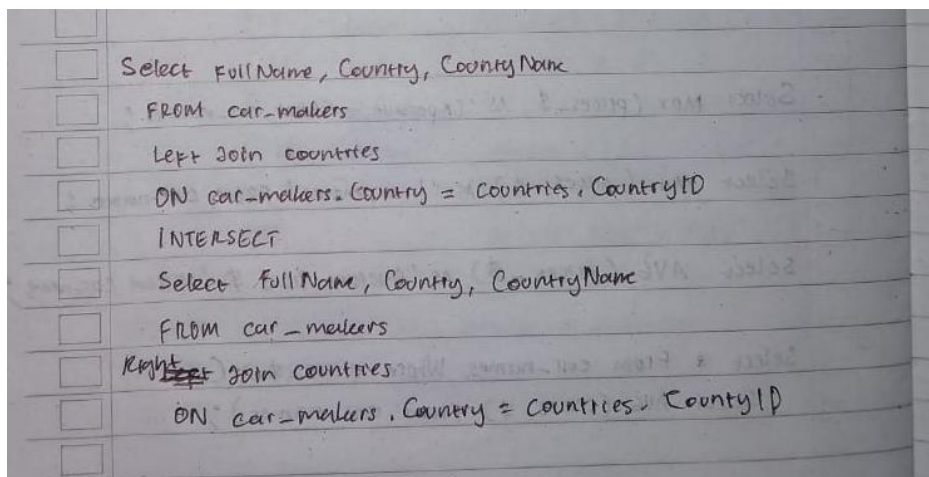 Select FullName, Country, CountryName
FROM car_makers
Left Join countries
ON car_makers.Country = countries.CountryID
INTERSECT
Select FullName, Country, CountryName
FROM car_makers
Right Join countries
ON car_makers.Country = countries.CountryID